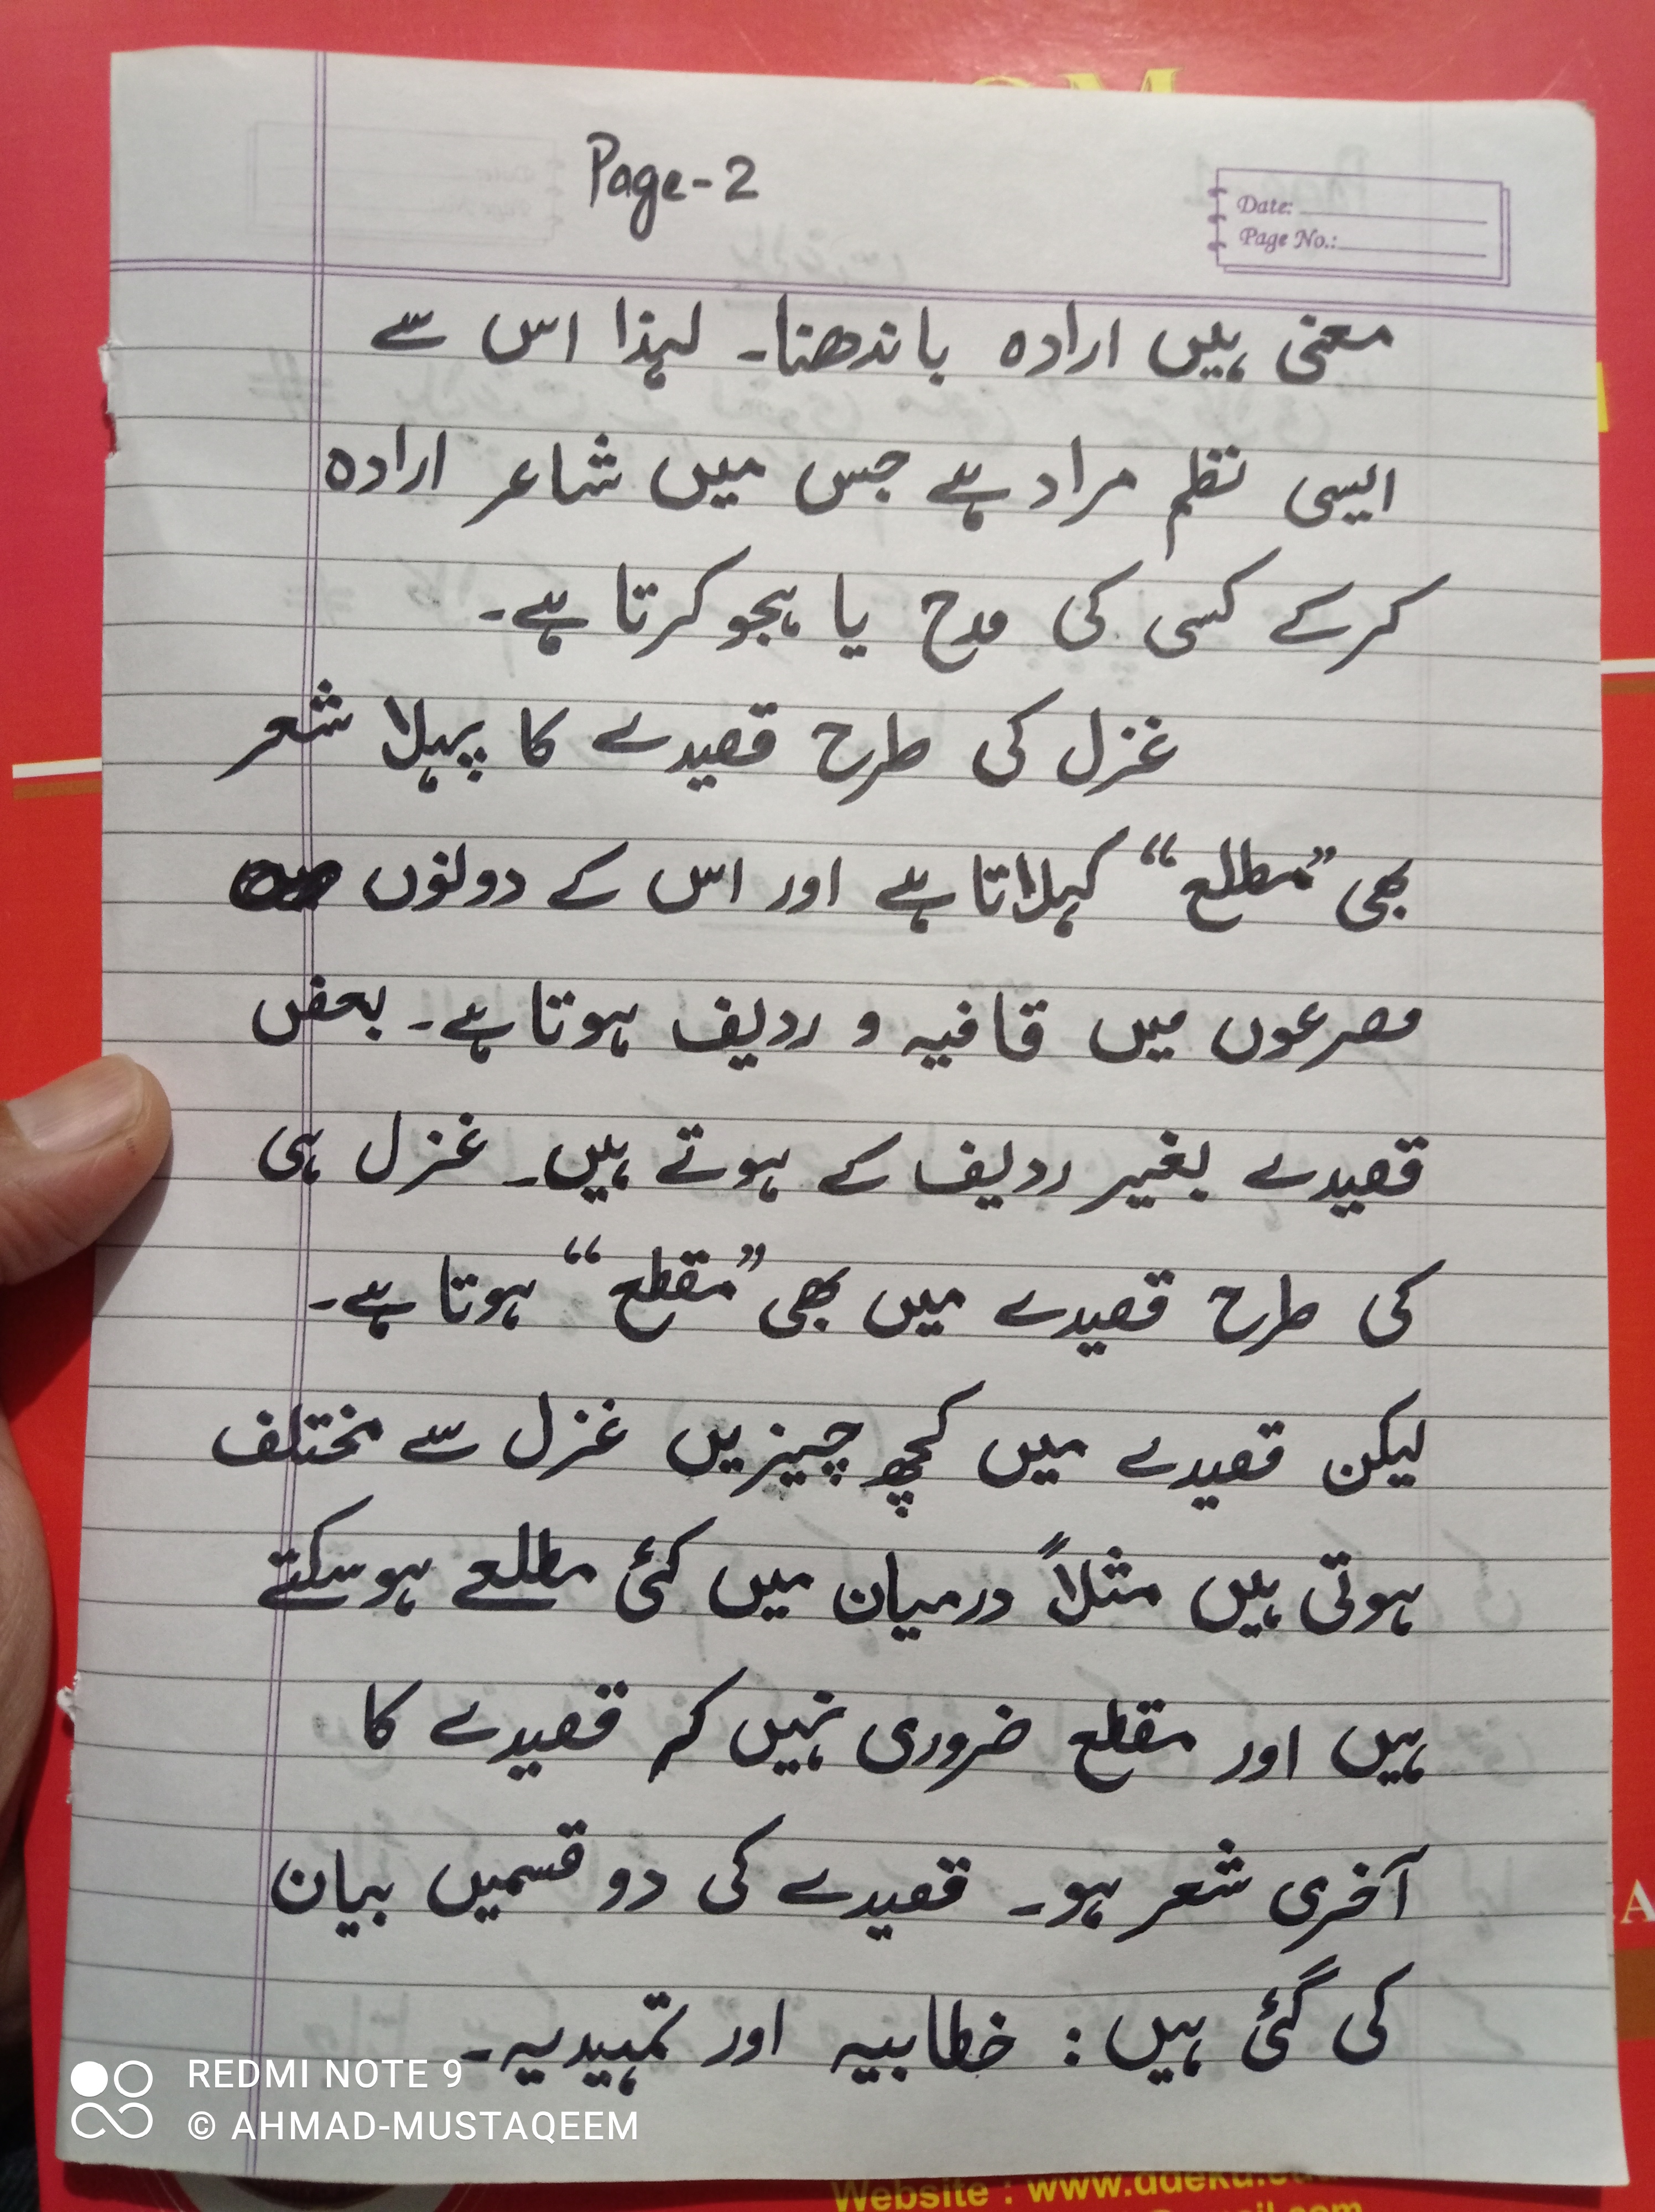 Page-2
Date:
Page No.:
معنی ہیں ارادہ باندھنا۔ لہٰذا اس سے
ایسی نظم مراد ہے جس میں شاعر ارادہ
کرکے کسی کی مدح یا ہجو کرتا ہے۔
غزل کی طرح قصیدے کا پہلا شعر
بھی ”مطلع“ کہلاتا ہے اور اس کے دونوں
مصرعوں میں قافیہ و ردیف ہوتا ہے۔ بعض
قصیدے بغیر ردیف کے ہوتے ہیں۔ غزل ہی
کی طرح قصیدے میں بھی ”مقطع“ ہوتا ہے۔
لیکن قصیدے میں کچھ چیزیں غزل سے مختلف
ہوتی ہیں مثلاً درمیان میں کئی مطلعے ہوسکتے
ہیں اور مقطع ضروری نہیں کہ قصیدے کا
آخری شعر ہو۔ قصیدے کی دو قسمیں بیان
کی گئی ہیں: خطابیہ اور تمہیدیہ۔
REDMI NOTE 9
© AHMAD-MUSTAQEEM
Website : www.ddeku.edu